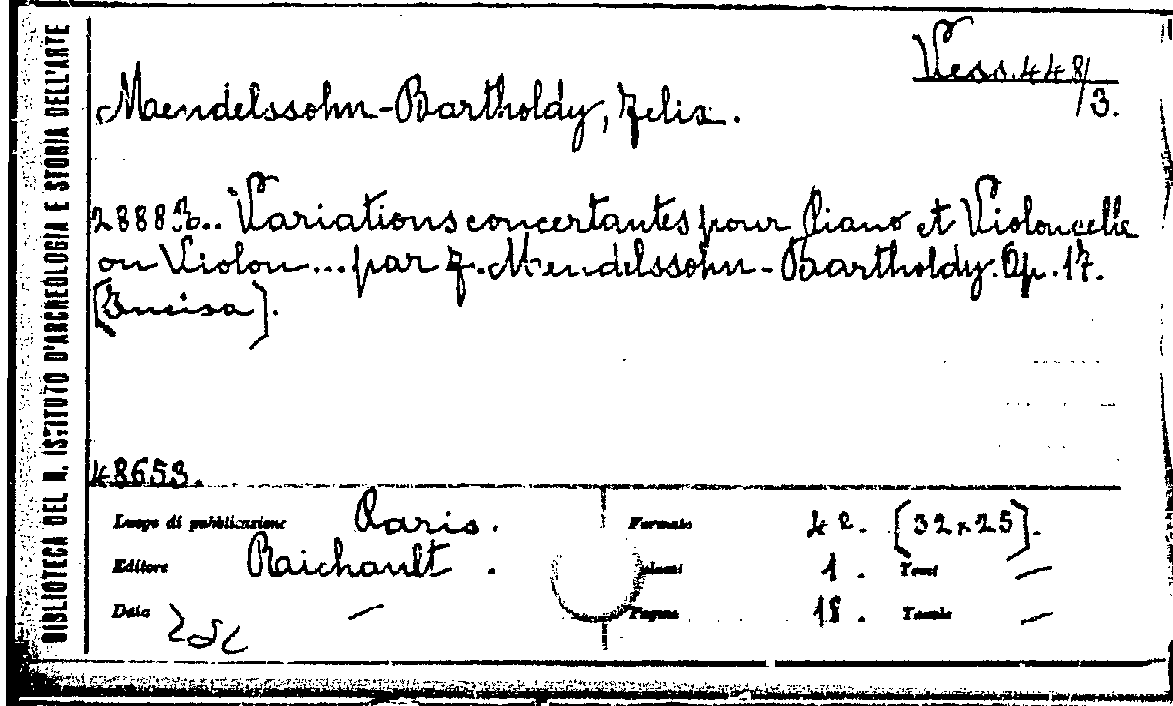 BIBLIOTECA DEL R. ISTITUTO D'ARCHEOLOGIA E STORIA DELL'ARTE
Vess. 448/3.
Maendelssohn-Bartholdy, Felix.
28883.. Variations concertantes pour Piano et Violoncelle
ou Violon... par F. Mendelssohn-Bartholdy. Op. 17.
[Incisa].
48653.
Luogo di pubblicazione Paris. Formato 4º. [32x25].
Editore Raichault. Volumi 1. Tomi —
Data — Pagine 18. Tavole —